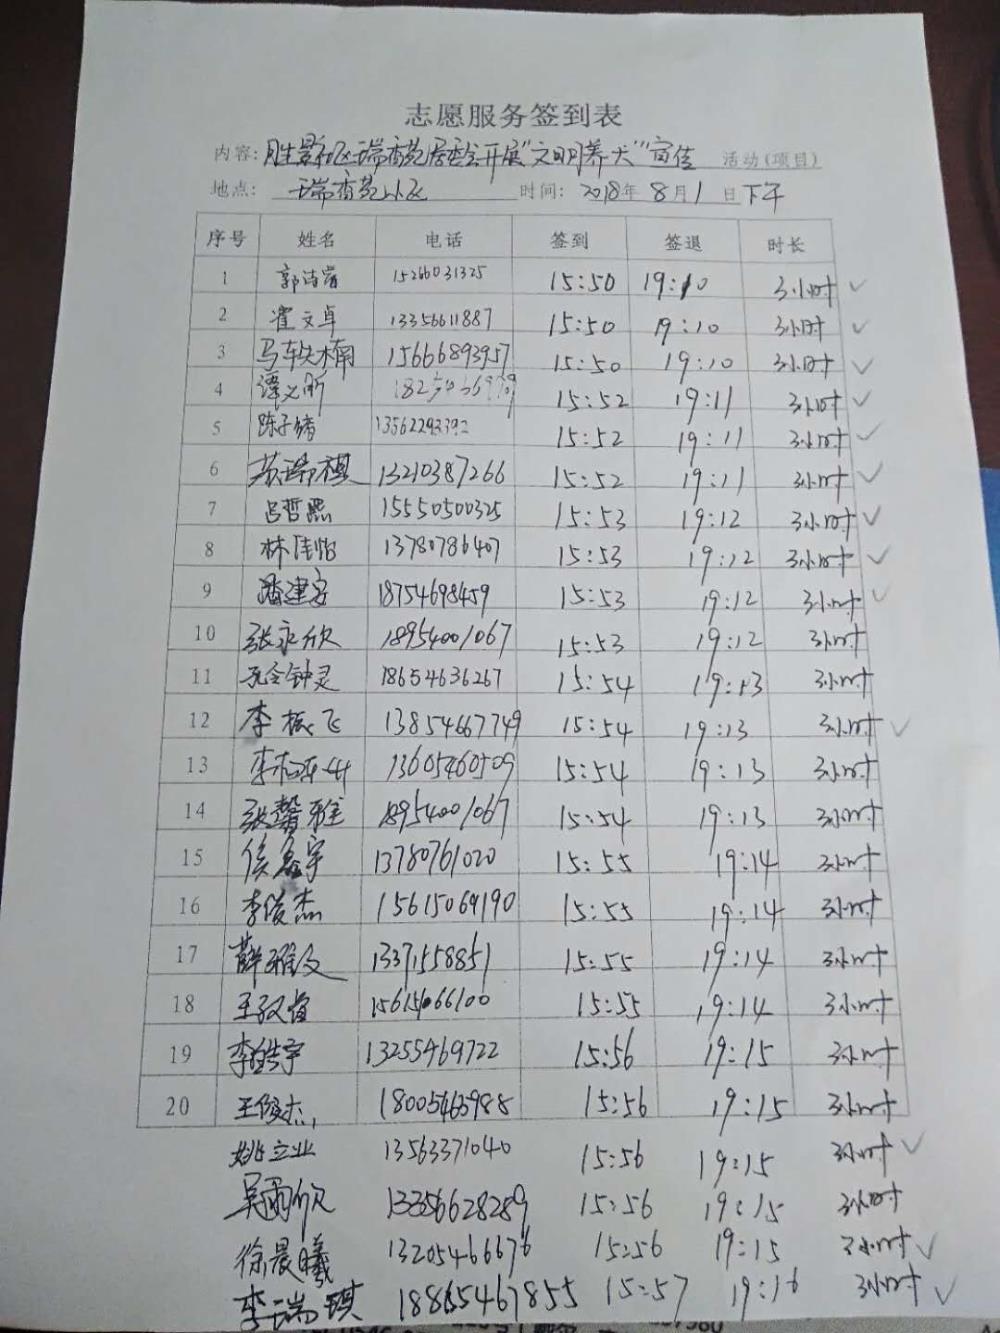 志愿服务签到表
内容: 胜景社区瑞香苑居委会开展"文明养犬"宣传 活动(项目)
地点: 瑞香苑小区 时间: 2018年8月1日下午
序号 姓名 电话 签到 签退 时长
1 郭 15266031325 15:50 19:10 3小时 ✓
2 翟文卓 13356611887 15:50 19:10 3小时 ✓
3 马轶楠 15666893957 15:50 19:10 3小时 ✓
4 谭 15:52 19:11 3小时 ✓
5 陈子 13562292392 15:52 19:11 3小时 ✓
6 苏瑞祺 13210387266 15:52 19:11 3小时 ✓
7 吕哲熙 15550500325 15:53 19:12 3小时 ✓
8 林佳怡 13780786407 15:53 19:12 3小时 ✓
9 潘建安 18754698459 15:53 19:12 3小时 ✓
10 张永欣 18954001067 15:53 19:12 3小时
11 孔令钟灵 18654636267 15:54 19:13 3小时
12 李振飞 13854667749 15:54 19:13 3小时 ✓
13 李 13605460509 15:54 19:13 3小时
14 张馨雅 18954001067 15:54 19:13 3小时
15 侯鑫宇 13780761020 15:55 19:14 3小时
16 李俊杰 15615069190 15:55 19:14 3小时
17 薛雅文 13371558851 15:55 19:14 3小时
18 王 15:55 19:14 3小时
19 李皓宇 13255469722 15:56 19:15 3小时
20 王俊杰 18005463988 15:56 19:15 3小时
姚立业 13563371040 15:56 19:15 3小时 ✓
吴雨欣 13356628289 15:56 19:15 3小时
徐晨曦 13205466676 15:56 19:15 3小时 ✓
李瑞琪 18865467855 15:57 19:16 3小时 ✓